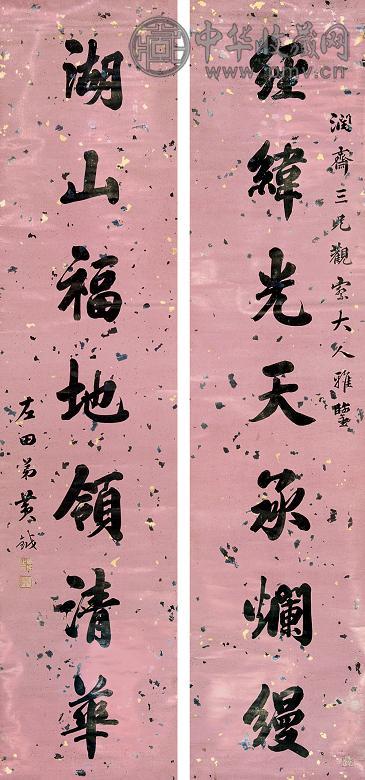 中华收藏网
潤齋三兄觀察大人雅鑒
經緯光天承爛縵
湖山福地領清華
左田弟黃鉞